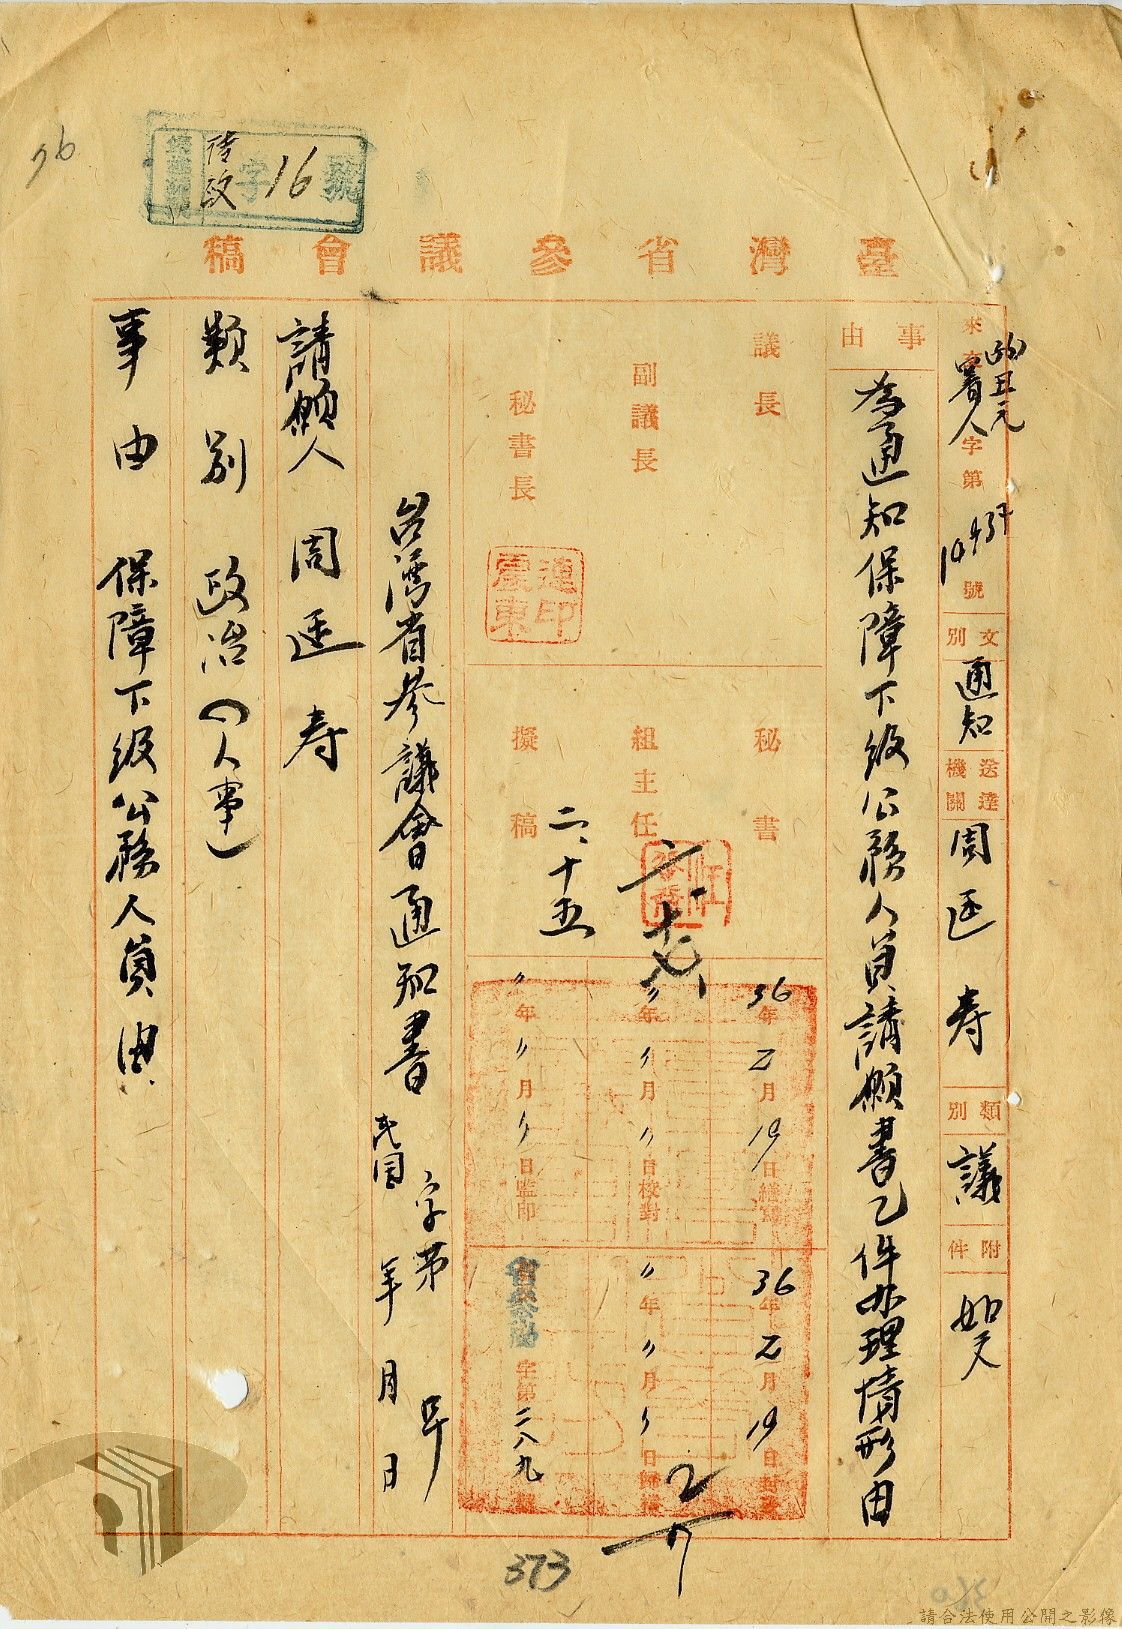 字16號
臺灣省參議會稿
來文 署人字第10437號
文別 通知
送達機關 周延寿
類別 議
附件 如文
事由 為通知保障下級公務人員請願書乙件办理情形由
議長
副議長
秘書長
連震東印
秘書
組主任
擬稿 二、十五
36年2月19日繕寫
〃年〃月〃日校對
〃年〃月〃日監印
36年2月19日封發
〃年〃月〃日歸檔
字第二八九號
台灣省参議會通知書
字第 号
民国 年 月 日
請願人 周延寿
類別 政治(人事)
事由 保障下級公務人員由
373
請合法使用公開之影像